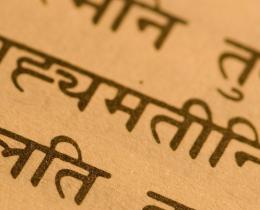 त्मनि तु
ह्यमती
लति